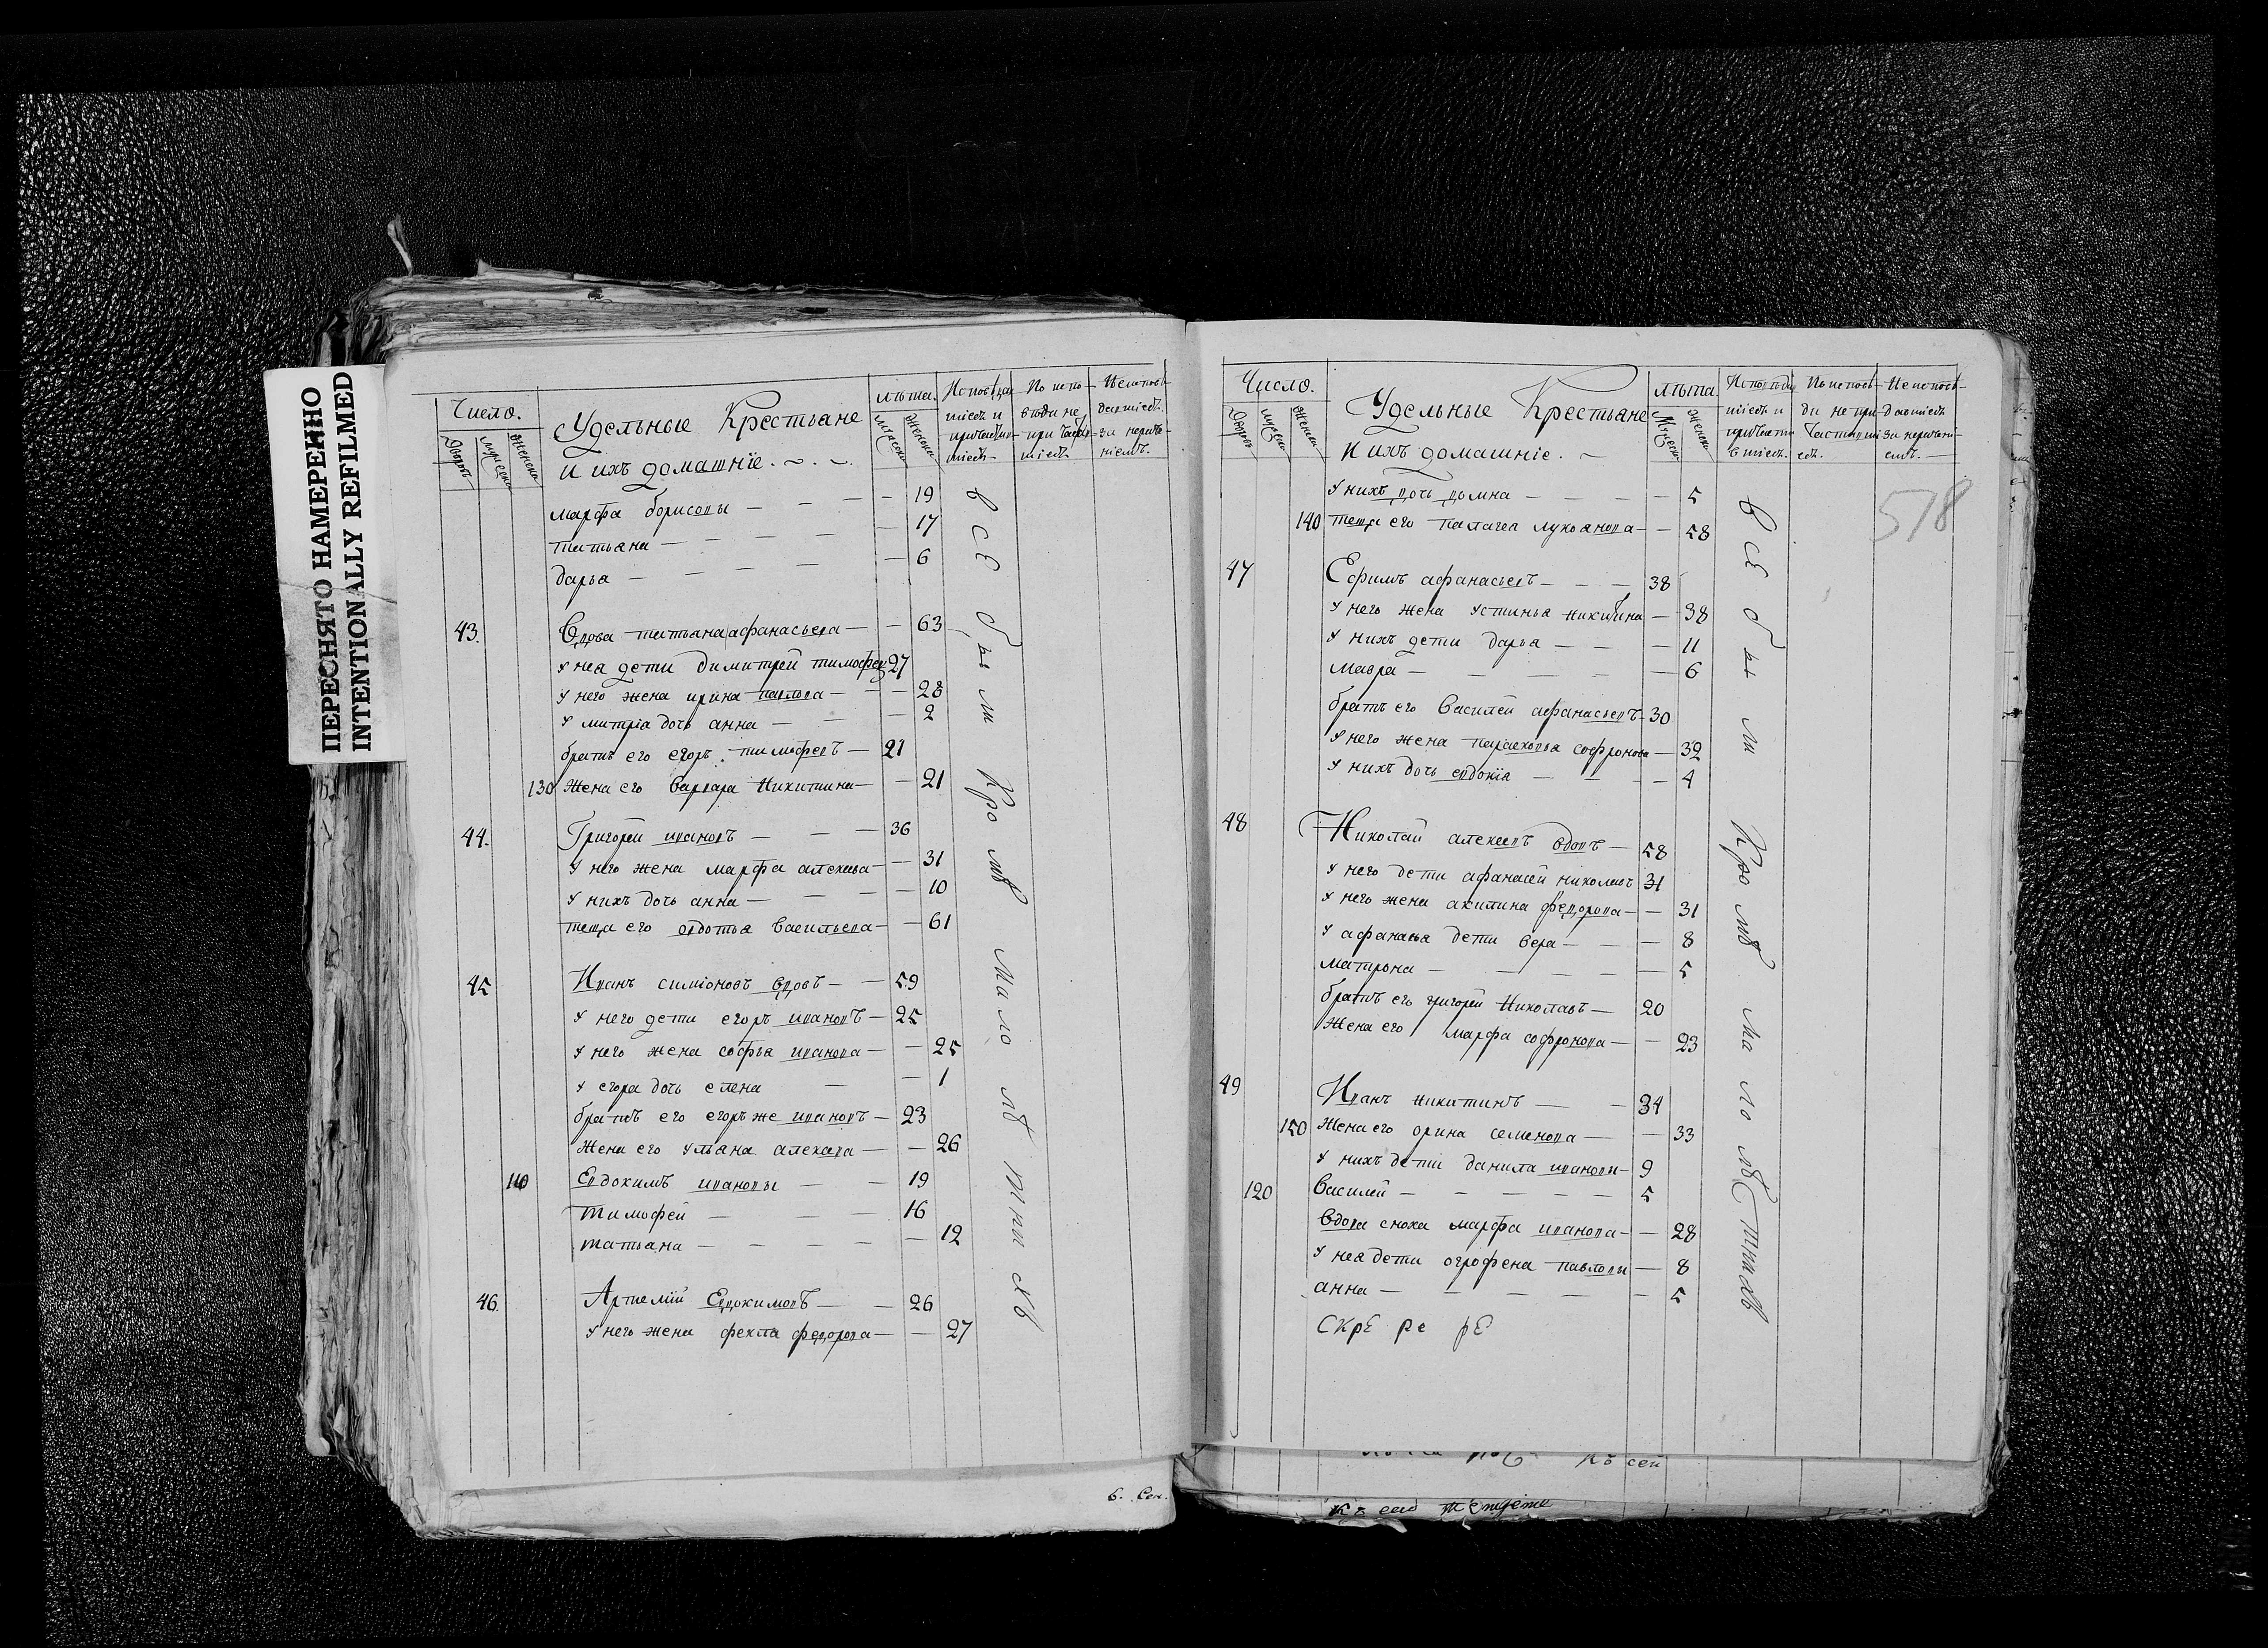 ПЕРЕСНЯТО НАМЕРЕННО
INTENTIONALLY REFILMED
Число.
Дворовъ
Мужеска
Женска
Удельные Крестьяне
и ихъ домашніе.
лѣта.
Мужеска
Женска
Исповѣдав
шіесь и
причастив
шіесь
По испо-
вѣди не
причастив
шіесь
Неисповѣ-
давшіесь.
за нерач-
ніемъ.
марфа борисовы — — — — 19
татьана — — — — — 17
дарьа — — — — — 6
43. Вдова татьана афанасьева — — 63
у неа дети димитрей тимофеев 27
у него жена ирина павлова — — 28
у митріа дочь анна — — — 2
братъ его егоръ тимофеевъ — 21
130 Жена его варвара Никитина — — 21
44. Григорей ивановъ — — — 36
у него жена марфа алексеева — — 31
у нихъ дочь анна — — — — 10
теща его овдотьа васильева — — 61
45 Иванъ симіоновъ вдовъ — — 59
у него дети егоръ ивановъ — 25
у него жена софьа иванова — — 25
у егора дочь елена — — 1
братъ его егоръ же ивановъ — 23
Жена его ульана алексеева — — 26
110 Евдокимъ ивановы — — 19
тимофей — — — 16
татьана — — — — — 12
46. Артемій Евдокимовъ — — 26
у него жена фекла федорова — — 27
всЕ были Кромѣ малолѣтнихъ
Число.
Дворовъ
Мужеска
Женска
Удельные Крестьяне
и ихъ домашніе.
лѣта.
Мужеска
Женска
Исповѣдав
шіесь и
причасти
вшіесь.
По исповѣ-
ди не при-
частивші
есь.
Не исповѣ-
давшіесь
за нерачені-
емъ.
518
у нихъ дочь домна — — — — 5
140 теща его палагеа лукоанова — — 58
47 Ефимъ афанасьевъ — — — 38
у него жена устиньа никитина — 38
у нихъ дети дарьа — — — 11
мавра — — — — — 6
братъ его василей афанасьевъ — 30
у него жена парасковьа софронова — 32
у нихъ дочь евдокіа — — — — 4
48 Николай алексеевъ вдовъ — 58
у него дети афанасей николаевъ 31
у него жена акилина федорова — — 31
у афанасьа дети вера — — — 8
матрона — — — — — 5
братъ его григорей Николаевъ — 20
Жена его марфа софронова — — 23
49 Иванъ никитинъ — — 34
150 Жена его орина семенова — — 33
у нихъ дети данила ивановы — 9
120 василей — — — — — 5
вдова сноха марфа иванова — — 28
у неа дети огрофена павловы — 8
анна — — — — — 5
всЕ были Кромѣ малолѣтнихъ
СКрЕ ре рЕ
къ сей
къ сей